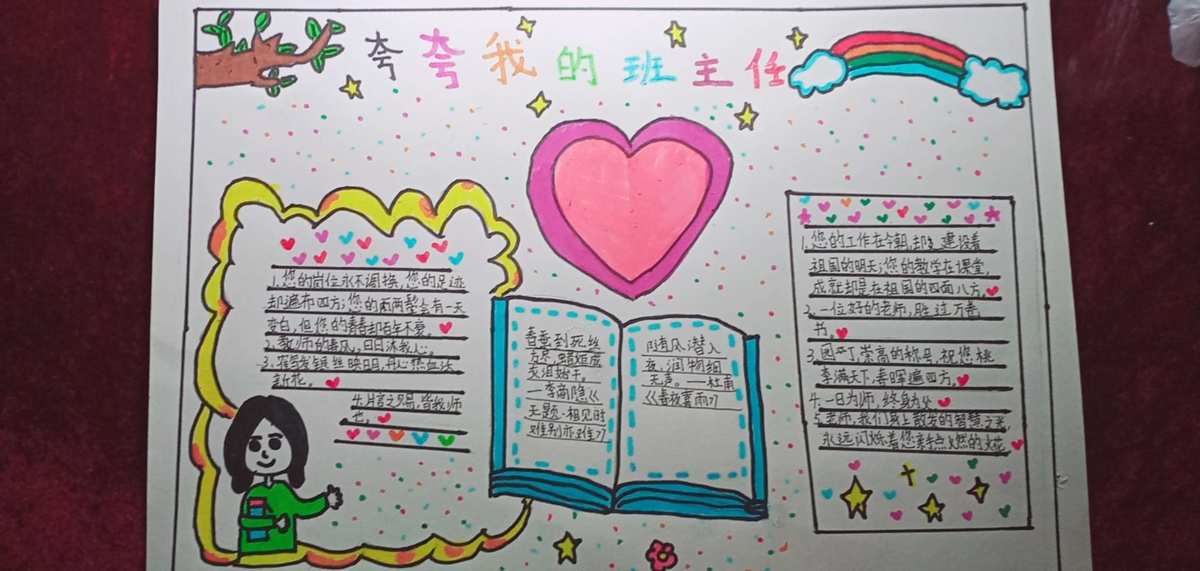 夸夸我的班主任
1.您的岗位永不调换，您的足迹
却遍布四方；您的两鬓会有一天
变白，但您的青春却百年不衰。
2.教师的春风，日日沐我心。
3.银丝映日月，丹心热血沃
新花。
4.片言之赐，皆我师
也。
春蚕到死丝
方尽，蜡炬成
灰泪始干。
—李商隐《
无题·相见时
难别亦难》
随风潜入
夜，润物细
无声。—杜甫
《春夜喜雨》
1.您的工作在今朝，却建设着
祖国的明天；您的教学在课堂，
成就却是在祖国的四面八方。
2.一位好的老师，胜过万卷
书。
3.园丁，崇高的称号，祝您桃
李满天下，春晖遍四方。
4.一日为师，终身为父
5.老师，我们身上散发的智慧之光
永远闪烁着您亲点燃的火花